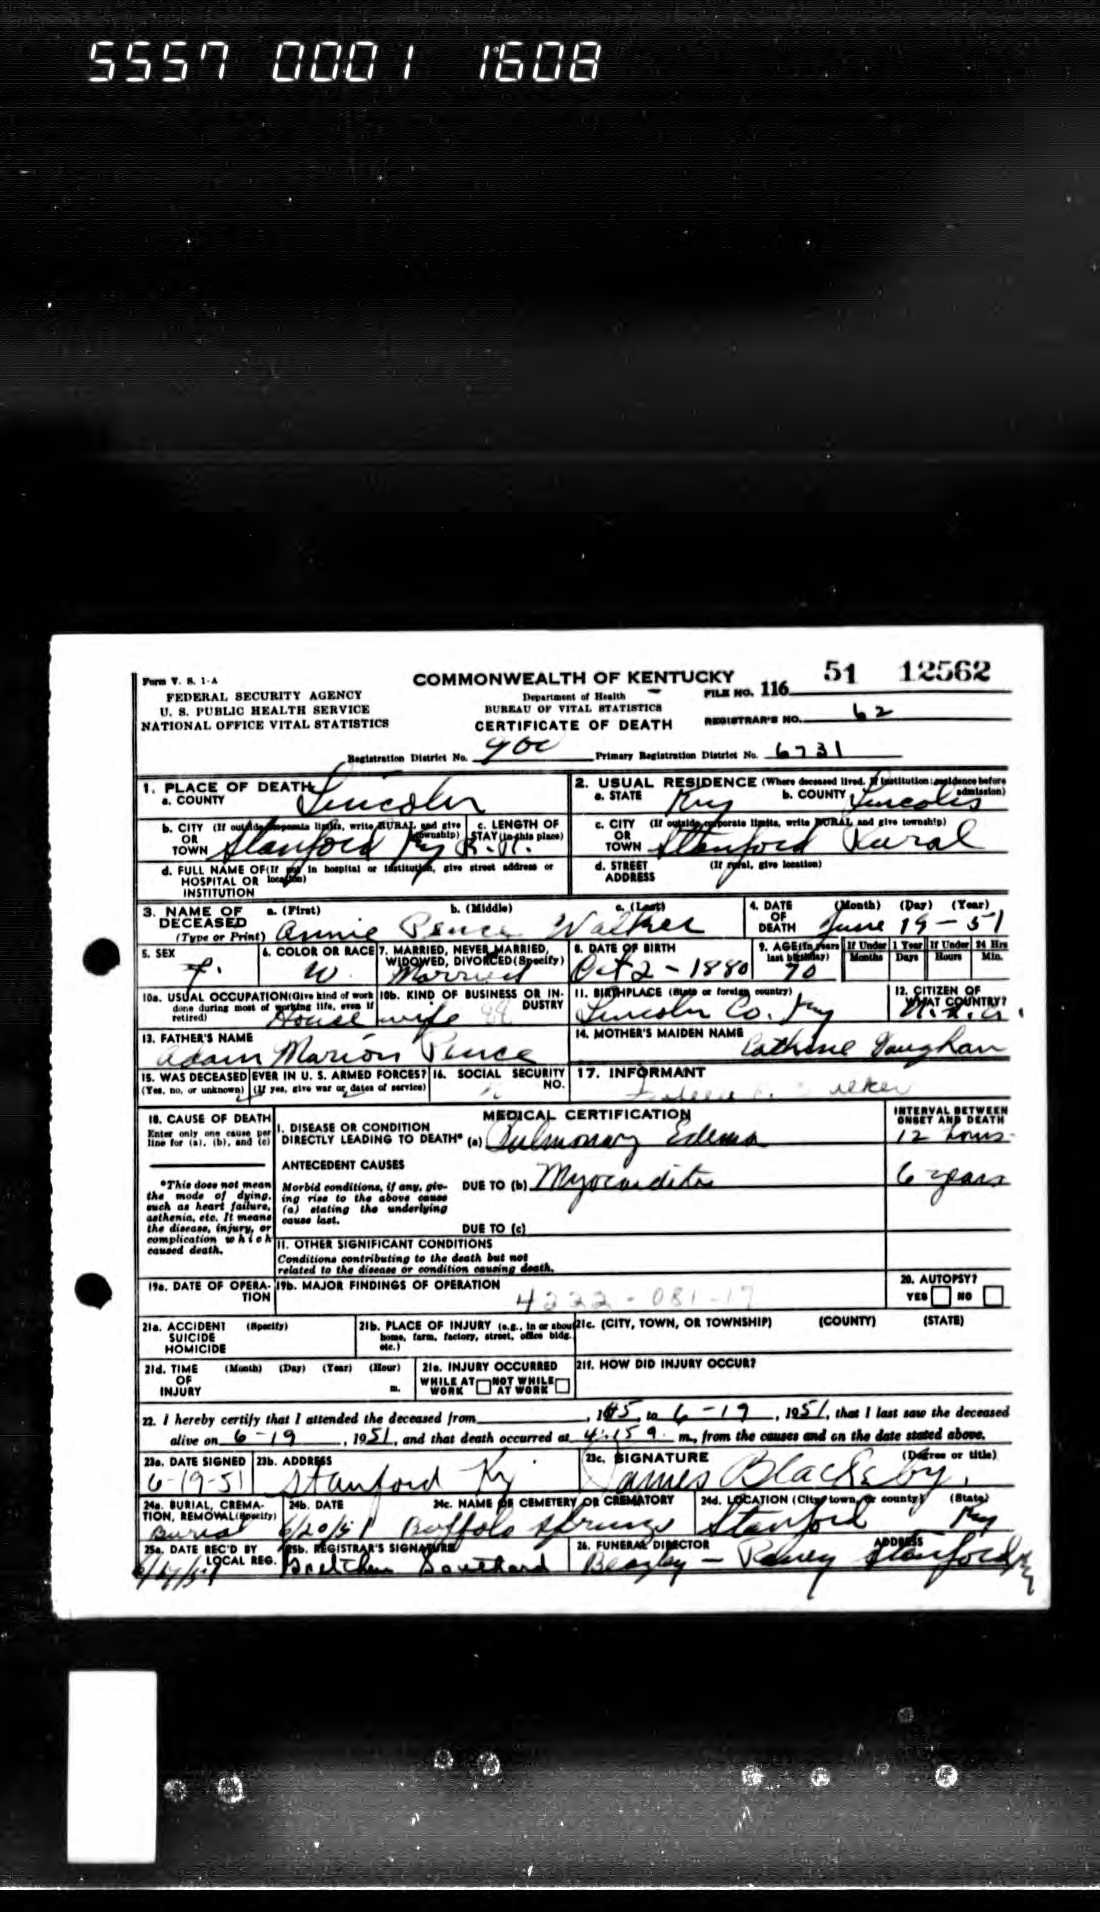 5557 0001 1608
Form V. S. 1-A
FEDERAL SECURITY AGENCY
U. S. PUBLIC HEALTH SERVICE
NATIONAL OFFICE VITAL STATISTICS
COMMONWEALTH OF KENTUCKY
Department of Health
BUREAU OF VITAL STATISTICS
CERTIFICATE OF DEATH
FILE NO. 116 51 12562
REGISTRAR'S NO. 62
Registration District No. 900 Primary Registration District No. 6731
1. PLACE OF DEATH
a. COUNTY Lincoln
2. USUAL RESIDENCE (Where deceased lived. If institution: residence before admission)
a. STATE Ky b. COUNTY Lincoln
b. CITY (If outside corporate limits, write RURAL and give township)
OR
TOWN Stanford Ky R.R.
c. LENGTH OF STAY (in this place)
c. CITY (If outside corporate limits, write RURAL and give township)
OR
TOWN Stanford Rural
d. FULL NAME OF (If not in hospital or institution, give street address or location)
HOSPITAL OR
INSTITUTION
d. STREET (If rural, give location)
ADDRESS
3. NAME OF DECEASED (Type or Print)
a. (First) b. (Middle) c. (Last)
Annie Pence Walker
4. DATE OF DEATH (Month) (Day) (Year)
June 19-51
5. SEX F.
6. COLOR OR RACE W.
7. MARRIED, NEVER MARRIED, WIDOWED, DIVORCED (Specify) Married
8. DATE OF BIRTH Oct 2-1880
9. AGE (In years last birthday) 70
If Under 1 Year Months Days
If Under 24 Hrs Hours Min.
10a. USUAL OCCUPATION (Give kind of work done during most of working life, even if retired) House wife
10b. KIND OF BUSINESS OR INDUSTRY
11. BIRTHPLACE (State or foreign country) Lincoln Co. Ky
12. CITIZEN OF WHAT COUNTRY? U.S.A.
13. FATHER'S NAME Adam Marion Pence
14. MOTHER'S MAIDEN NAME Cathrine Vaughan
15. WAS DECEASED EVER IN U. S. ARMED FORCES?
(Yes, no, or unknown) (If yes, give war or dates of service)
16. SOCIAL SECURITY NO.
17. INFORMANT
18. CAUSE OF DEATH
Enter only one cause per line for (a), (b), and (c)
MEDICAL CERTIFICATION
INTERVAL BETWEEN ONSET AND DEATH
I. DISEASE OR CONDITION
DIRECTLY LEADING TO DEATH* (a) Pulmonary Edema 12 hours
ANTECEDENT CAUSES
Morbid conditions, if any, giving rise to the above cause (a) stating the underlying cause last.
DUE TO (b) Myocarditis 6 years
DUE TO (c)
*This does not mean the mode of dying, such as heart failure, asthenia, etc. It means the disease, injury, or complication which caused death.
II. OTHER SIGNIFICANT CONDITIONS
Conditions contributing to the death but not related to the disease or condition causing death.
19a. DATE OF OPERATION
19b. MAJOR FINDINGS OF OPERATION
4222-081-17
20. AUTOPSY?
YES NO
21a. ACCIDENT (Specify)
SUICIDE
HOMICIDE
21b. PLACE OF INJURY (e.g., in or about home, farm, factory, street, office bldg. etc.)
21c. (CITY, TOWN, OR TOWNSHIP) (COUNTY) (STATE)
21d. TIME (Month) (Day) (Year) (Hour)
OF
INJURY m.
21e. INJURY OCCURRED
WHILE AT WORK NOT WHILE AT WORK
21f. HOW DID INJURY OCCUR?
22. I hereby certify that I attended the deceased from , 1945, to 6-19, 1951, that I last saw the deceased
alive on 6-19, 1951, and that death occurred at 4:15 a. m., from the causes and on the date stated above.
23a. DATE SIGNED 6-19-51
23b. ADDRESS Stanford Ky
23c. SIGNATURE (Degree or title)
James Blacksby
24a. BURIAL, CREMATION, REMOVAL (Specify) Burial
24b. DATE 6/20/51
24c. NAME OF CEMETERY OR CREMATORY Buffalo Springs
24d. LOCATION (City, town, or county) (State)
Stanford Ky
25a. DATE REC'D BY LOCAL REG.
25b. REGISTRAR'S SIGNATURE Gretchen Southard
26. FUNERAL DIRECTOR ADDRESS
Beazley - Raney Stanford Ky